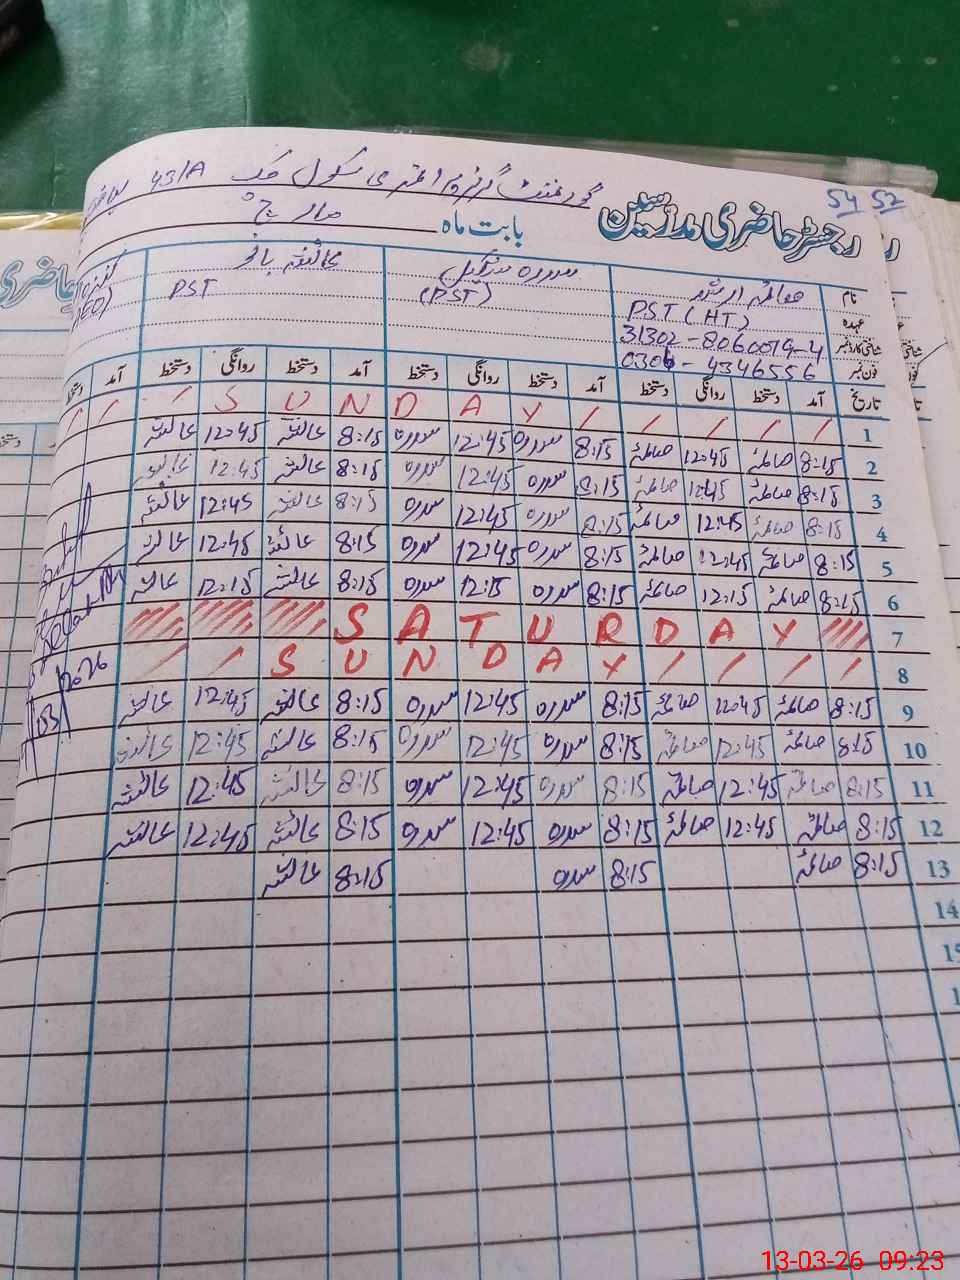 54 52
گورنمنٹ گرلز پرائمری سکول چک 431/A
رجسٹر حاضری مدرسین
بابت ماہ مارچ
نام صائمہ ارشد سدرہ عائشہ بانو
عہدہ PST (HT) (PST) PST
شناختی کارڈ نمبر 31302-8060019-4
فون نمبر 0306-4346556
تاریخ آمد دستخط روانگی دستخط آمد دستخط روانگی دستخط آمد دستخط روانگی دستخط آمد
1 / / / / / S U N D A Y / / /
2 8:15 صائمہ 12:45 صائمہ 8:15 سدرہ 12:45 سدرہ 8:15 عائشہ 12:45 عائشہ
3 8:15 صائمہ 12:45 صائمہ 8:15 سدرہ 12:45 سدرہ 8:15 عائشہ 12:45 عائشہ
4 8:15 صائمہ 12:45 صائمہ 8:15 سدرہ 12:45 سدرہ 8:15 عائشہ 12:45 عائشہ
5 8:15 صائمہ 12:45 صائمہ 8:15 سدرہ 12:45 سدرہ 8:15 عائشہ 12:45 عائشہ
6 8:15 صائمہ 12:15 صائمہ 8:15 سدرہ 12:15 سدرہ 8:15 عائشہ 12:15 عائشہ
7 S A T U R D A Y
8 / / / / S U N D A Y / /
9 8:15 صائمہ 12:45 صائمہ 8:15 سدرہ 12:45 سدرہ 8:15 عائشہ 12:45 عائشہ
10 8:15 صائمہ 12:45 صائمہ 8:15 سدرہ 12:45 سدرہ 8:15 عائشہ 12:45 عائشہ
11 8:15 صائمہ 12:45 صائمہ 8:15 سدرہ 12:45 سدرہ 8:15 عائشہ 12:45 عائشہ
12 8:15 صائمہ 12:45 صائمہ 8:15 سدرہ 12:45 سدرہ 8:15 عائشہ 12:45 عائشہ
13 8:15 صائمہ 8:15 سدرہ 8:15 عائشہ
14
15
13-03-26 09:23